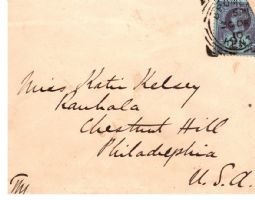 Miss Katie Kelsey
Kauhala
Chestnut Hill
Philadelphia
U.S.A.